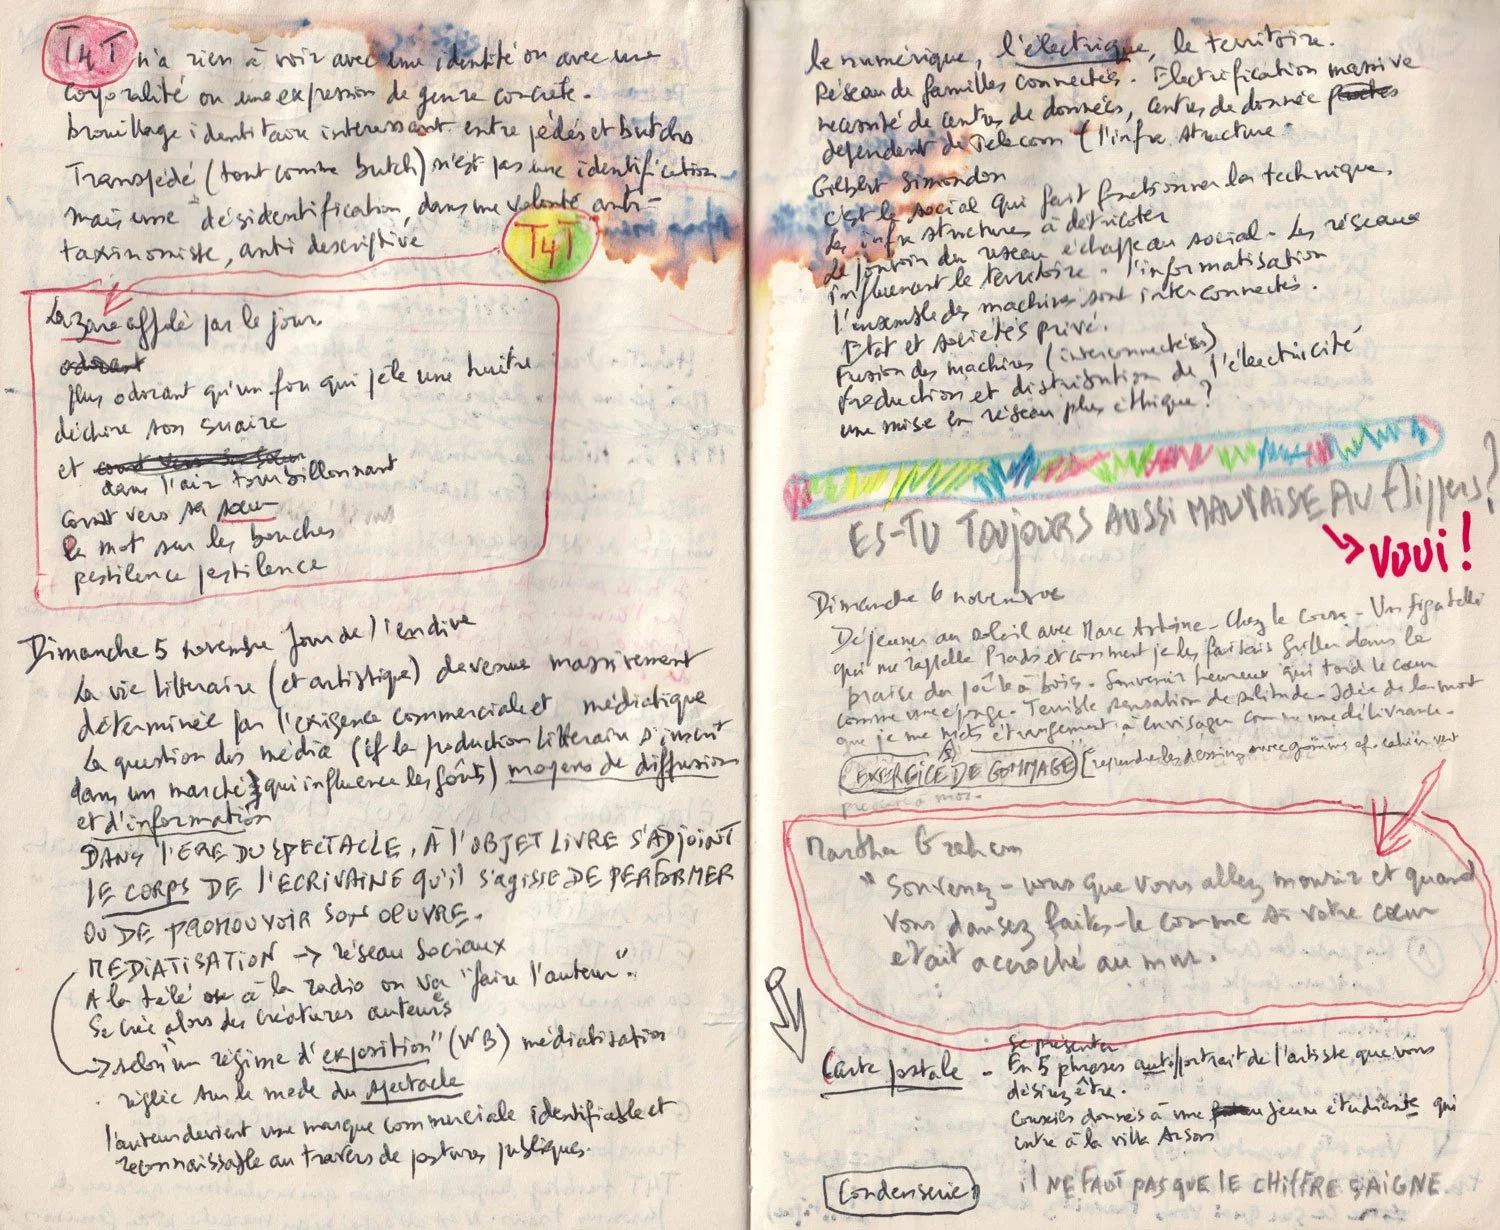 T4T n'a rien à voir avec une identité ou avec une
corporalité ou une expression de genre concrète.
brouillage identitaire interessant entre pédés et butchs
Transpédé (tout comme butch) n'est pas une identification
mais une "désidentification, dans une volonté anti-
taxinomiste, anti descriptive
T4T
Lazare affolé par le jour
odorant
plus odorant qu'un fou qui jète une huître
déchire son suaire
et
dans l'air tourbillonnant
court vers sa sœur
le mot sur les bouches
pestilence pestilence
Dimanche 5 novembre Jour de l'endive
La vie littéraire (et artistique) devenue massivement
déterminée par l'exigence commerciale et médiatique
La question des média (if la production littéraire s'inscrit
dans un marché qui influence les goûts) moyens de diffusion
et d'information
DANS l'ERE DU SPECTACLE, À l'OBJET LIVRE S'ADJOINT
LE CORPS DE l'ECRIVAINE QU'il S'AGISSE DE PERFORMER
OU DE PROMOUVOIR SON OEUVRE.
MEDIATISATION → réseau sociaux
A la télé ou à la radio on va "faire l'auteur".
Se crée alors des créatures auteurs
→ selon un régime d'exposition" (WB) médiatisation
réglée sur le mode du spectacle
l'auteur devient une marque commerciale identifiable et
reconnaissable au travers de postures publiques.
le numérique, l'électrique, le territoire.
Réseau de familles connectées. Electrification massive
necessité de centres de données, centres de donnée
dépendent de Telecom (l'infra structure.
Gilbert Simondon
c'est le social qui fait fonctionner la technique.
les infra structures à détricoter
le pouvoir du reseau échappe au social. Les réseaux
influencent le territoire. l'informatisation
l'ensemble des machines sont interconnectés.
Etat et sociétés privé.
Fusion des machines (interconnectées)
production et distribution de l'électricité
une mise en réseau plus éthique?
ES-TU TOUJOURS AUSSI MAUVAISE AU flippers?
VOUI!
Dimanche 6 novembre
Déjeuner au soleil avec Marc Antoine - Chez le Corse - Un figatelli
qui me rappelle Prads et comment je les faisais griller dans la
braise du poêle à bois. Souvenir heureux qui tord le cœur
comme une éponge. Terrible sensation de solitude. Idée de la mort
que je me mets étrangement à envisager comme une délivrance.
EXERCICE DE GOMMAGE [reprendre les dessins avec gommes cf. cahier vert
Martha Graham
"Souvenez-vous que vous allez mourir et quand
vous dansez faites-le comme si votre cœur
était accroché au mur.
Se présenter
Carte postale - En 5 phrases autoportrait de l'artiste que vous
désirez être.
Conseils donnés à une jeune étudiante qui
entre à la villa Arson
Condenserie
il NE FAUT PAS QUE LE CHIFFRE SAIGNE